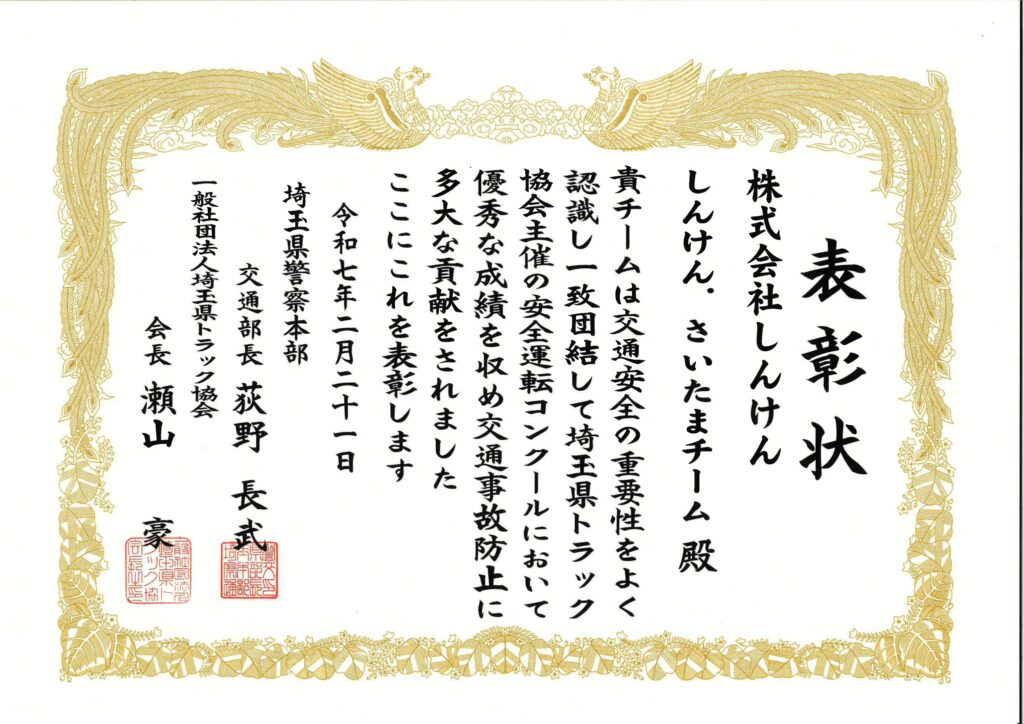 表彰状
株式会社しんけん
しんけん．さいたまチーム 殿
貴チームは交通安全の重要性をよく
認識し一致団結して埼玉県トラック
協会主催の安全運転コンクールにおいて
優秀な成績を収め交通事故防止に
多大な貢献をされました
ここにこれを表彰します
令和七年二月二十一日
埼玉県警察本部
交通部長 荻野 長武
一般社団法人埼玉県トラック協会
会長 瀬山 豪